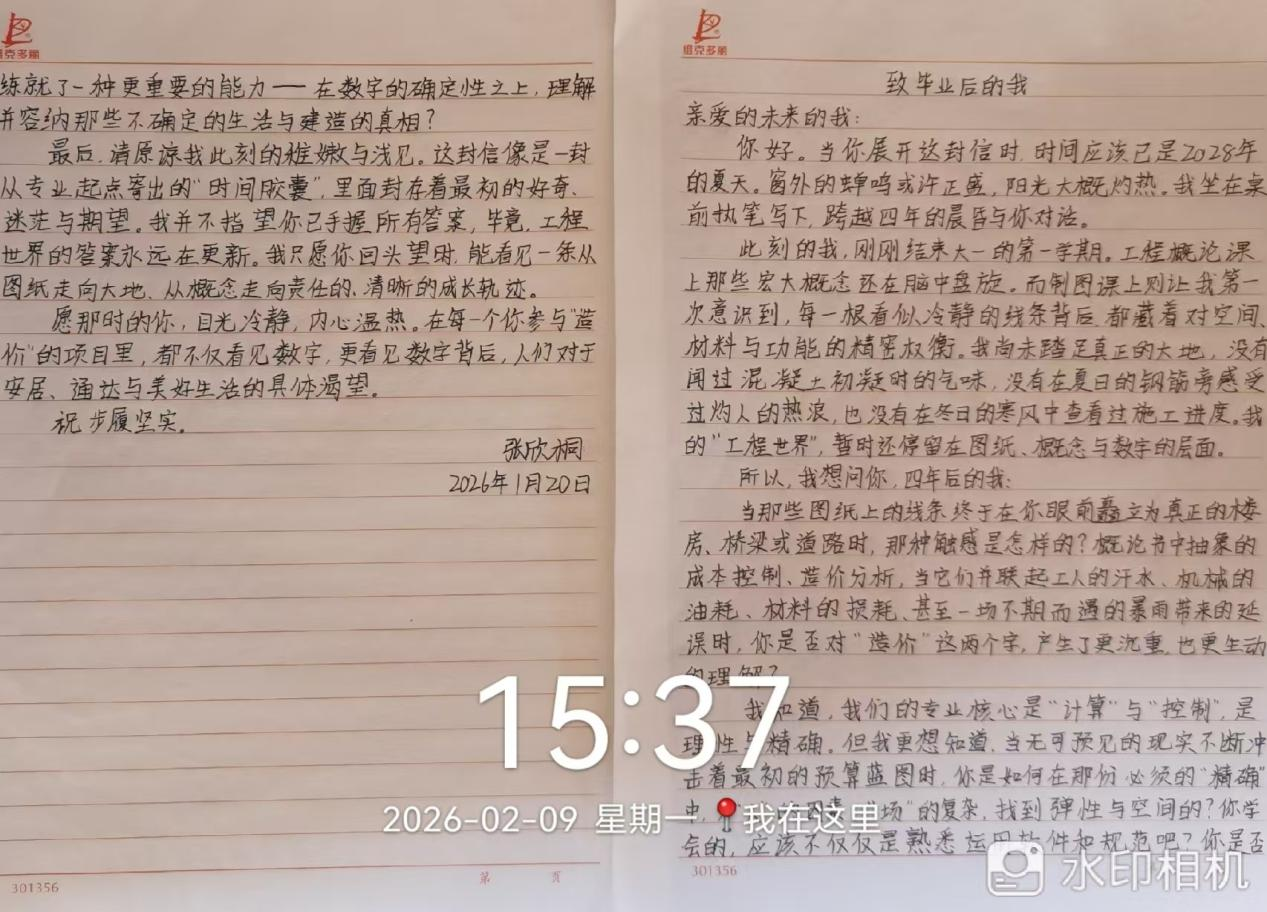 致毕业后的我
亲爱的未来的我：
你好。当你展开这封信时，时间应该已是2028年
的夏天。窗外的蝉鸣或许正盛，阳光大概灼热。我坐在桌
前执笔写下，跨越四年的晨昏与你对话。
此刻的我，刚刚结束大一的第一学期。工程概论课
上那些宏大概念还在脑中盘旋。而制图课上则让我第一
次意识到，每一根看似冷静的线条背后，都藏着对空间、
材料与功能的精密权衡。我尚未踏足真正的大地，没有
闻过混凝土初凝时的气味，没有在夏日的钢筋旁感受
过灼人的热浪，也没有在冬日的寒风中查看过施工进度。我
的“工程世界”，暂时还停留在图纸、概念与数字的层面。
所以，我想问你，四年后的我：
当那些图纸上的线条终于在你眼前矗立为真正的楼
房、桥梁或道路时，那种触感是怎样的？概论书中抽象的
成本控制、造价分析，当它们并联起工人的汗水、机械的
油耗、材料的损耗、甚至一场不期而遇的暴雨带来的延
误时，你是否对“造价”这两个字，产生了更沉重，也更生动
的理解？
我知道，我们的专业核心是“计算”与“控制”，是
理性与精确。但我更想知道，当无可预见的现实不断冲
击着最初的预算蓝图时，你是如何在那份必须的“精确”
中，场”的复杂，找到弹性与空间的？你学
会的，应该不仅仅是熟悉运用软件和规范吧？你是否
301356
维克多丽
练就了一种更重要的能力——在数字的确定性之上，理解
并容纳那些不确定的生活与建造的真相？
最后，请原谅我此刻的稚嫩与浅见。这封信像是一封
从专业起点寄出的“时间胶囊”，里面封存着最初的好奇、
迷茫与期望。我并不指望你已手握所有答案，毕竟，工程
世界的答案永远在更新。我只愿你回头望时，能看见一条从
图纸走向大地、从概念走向责任的、清晰的成长轨迹。
愿那时的你，目光冷静，内心温热。在每一个你参与“造
价”的项目里，都不仅看见数字，更看见数字背后，人们对于
安居、通达与美好生活的具体渴望。
祝步履坚实。
张欣桐
2026年1月20日
301356
第 页
维克多丽
15:37
2026-02-09 星期一 我在这里
水印相机